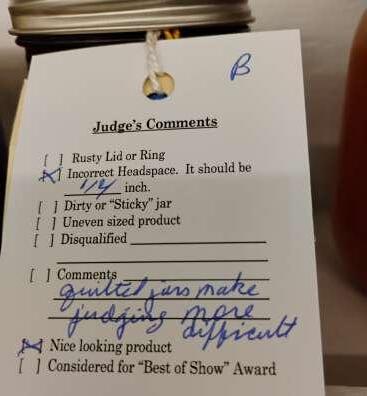 B
Judge's Comments
[ ] Rusty Lid or Ring
[X] Incorrect Headspace. It should be
1/4 inch.
[ ] Dirty or "Sticky" jar
[ ] Uneven sized product
[ ] Disqualified
[ ] Comments
quilted jars make
judging more
difficult
[X] Nice looking product
[ ] Considered for "Best of Show" Award